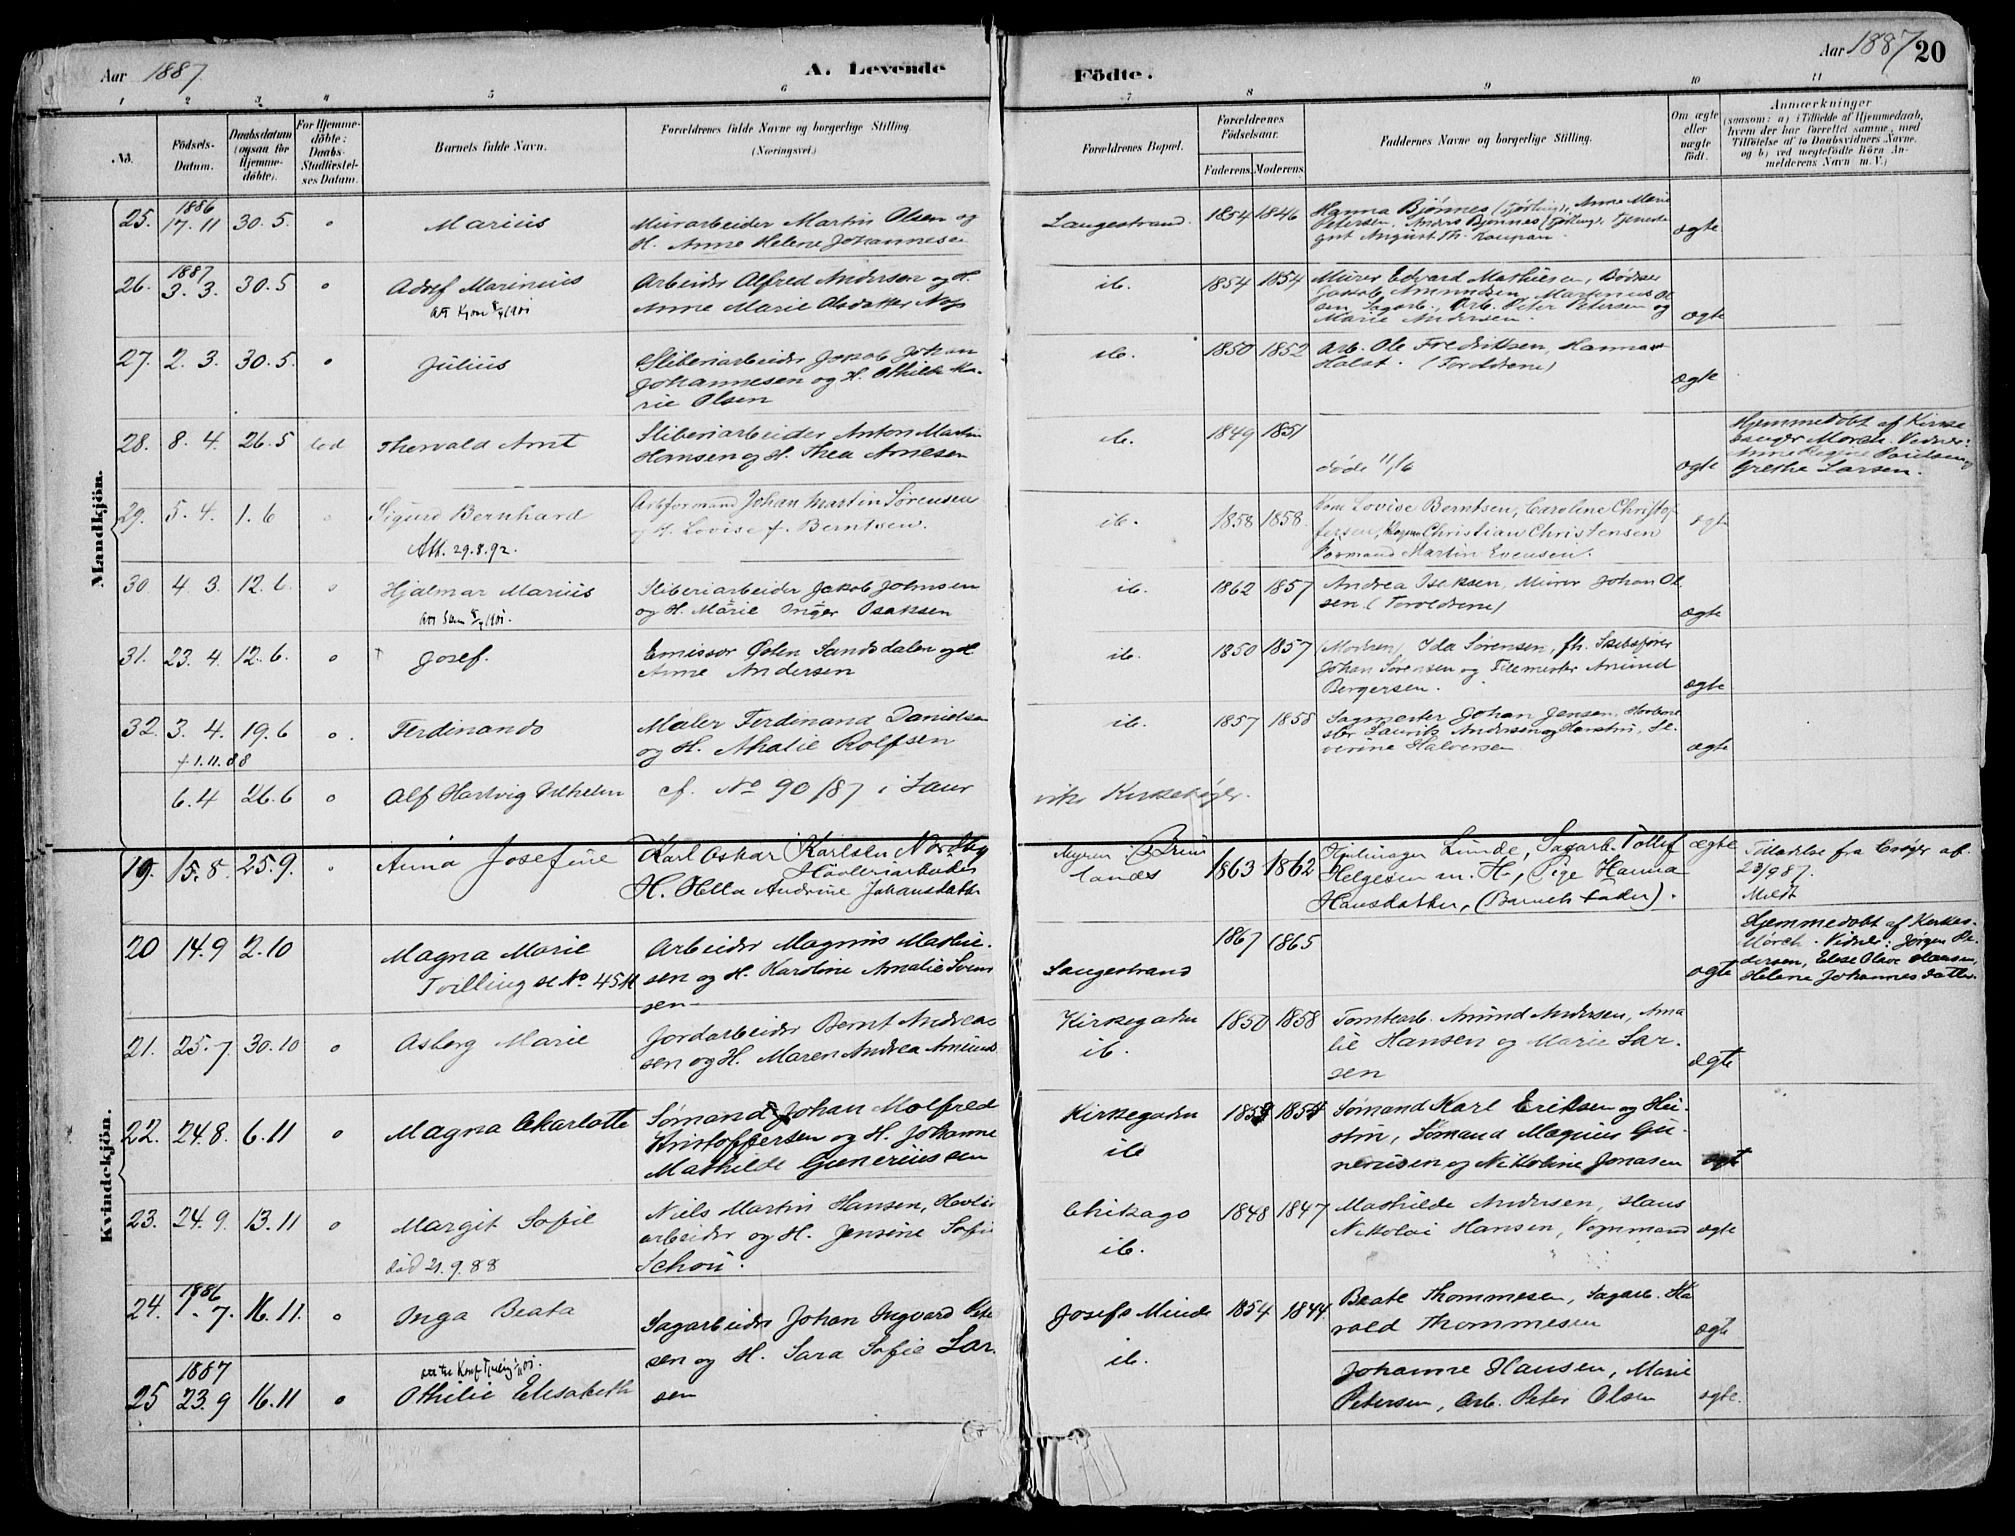 Aar 1887.
A. Levende
Födte.
Aar 1887
20
1 2 3 4 5 6 7 8 9 10 11
No.
Födsels-Datum.
Daabsdatum (ogsaa for Hjemme-döbte).
For Hjemme-döbte: Daabs-Stadfæstel-ses Datum.
Barnets fulde Navn.
Forældrenes fulde Navne og borgerlige Stilling
(Næringsvei.)
Forældrenes Bopæl.
Forældrenes Födselsaar.
Faderens. Moderens.
Faddernes Navne og borgerlige Stilling.
Om ægte eller uægte födt.
Anmærkninger
(saasom: a) i Tilfælde af Hjemmedaab,
hvem der har forrettet samme, med
Tilföielse af to Daabsvidners Navne,
og b) ved uægtefödte Börn An-
melderens Navn m. V.)
Mandkjön.
25. 1886 17.11 30.5. Marius
Murarbeider Martin Olsen og
H. Anne Helene Johannesen
Langestrand. 1854 1846
Hanna Bjønnes (Tjølling), Anne Marie
Petersen, Anders Bjønnes (Tjølling), Tjeneste
gut August Th. Kaupan. ægte
26. 1887 3.3. 30.5 Adolf Marinius
Arbeider Alfred Andersen og H.
Anne Marie Olsdatter
ib. 1854 1854
Murer Edvard Mathiesen, Bødker
Jakob Amundsen, Martinius Ol
sen Sagarb., Arb. Peter Petersen og
Marie Andersen. ægte
27. 2.3. 30.5. Julius
Sliberiarbeider Jakob Johan
Johannesen og H. Othilde Ka-
rie Olsen
ib. 1850 1852
Arb. Ole Fredriksen, Hanna
Holst. (Foreldrene) ægte
28. 8.4. 26.5 Thorvald Arnt
Sliberiarbeider Anton Martin
Hansen og H. Thea Arnesen
ib. 1849 1851
døde 11/6 ægte
Hjemmedøbt af Kirke
sanger Mørch. Vidner:
Anne Regine Paulsen og
Grethe Larsen.
29. 5.4. 1.6 Sigurd Bernhard
Att. 29.8.92.
Arbformand Johan Martin Sørensen
og H. Lovise f. Berntsen.
ib. 1858 1858.
Kone Lovise Berntsen, Caroline Christof
fersen, Christian Christensen
Formand Martin Evensen. ægte
30. 4.3. 12.6. Hjalmar Marius
Sliberiarbeider Jakob Johnsen
og H. Marie Inger Isaksen
ib. 1862 1857
Andrea Iseksen, Murer Johan Ol
sen. (Foreldrene) ægte
31. 23.4. 12.6. Josef.
Emissær Østen Sandsdalen og H.
Anne Andersen
ib. 1850 1857
(Modren) Ida Sørensen, fh. Skibsfører
Johan Sørensen og Filemester Amund
Bergersen. ægte
32. 3.4. 19.6 Ferdinando
+ 1.11.88
Maler Ferdinand Danielsen
og H. Athalie Rolfsen
ib. 1857 1858
Sagmester Johan Jensen,
Laurits Andersen og Hustru, Se-
verine Halversen ægte
6.4 26.6 Alf Hartvig Vilhelm
cf. No 90/87 i Laur
viks Kirkebøger.
Kvindekjön.
19. 15.8. 25.9. Anna Josefine
Karl Oskar Karlsen Nordby
Høvleriarbeider
H. Hella Andrine Johansdatter
Myren i Brun
lanes 1863 1862
Lunde, Sagarb. Tollef
Helgesen m. H., Pige Hanna
Hansdatter, (Barnets fader). ægte
Tilladelse fra af
23/9 87.
Meldt
20 14.9 2.10 Magna Marie
Tvilling se No 45
Arbeider Magnus Mathie-
sen og H. Karoline Amalie Sven
sen
Langestrand 1867 1865 ægte
Hjemmedøbt af Kirkes.
Mørch. Vidner: Jørgen Pe-
dersen, Elise Olave Hansen,
Helene Johannesdatter.
21. 25.7. 30.10 Asborg Marie
Jordarbeider Bernt Andreas
sen og H. Maren Andrea Amund
sen
Kirkegaden
ib. 1850 1858
Tomtearb. Amund Andersen, Ama
lie Hansen og Marie Lar-
sen ægte
22. 24.8. 6.11 Magna Charlotte
Sømand Johan Molfred
Kristoffersen og H. Johanne
Mathilde Gunerius sen
Kirkegaden
ib 1853 1854
Sømand Karl Eriksen og Hu-
stru, Sømand Magnus Gu-
neriusen og Nikoline Jonasen ægte
23. 24.9. 13.11 Margit Sofie
død 21.9.88
Niels Martin Hansen, Høvleri
arbeider og H. Jensine Sofie
Schou.
Chikago
ib. 1848 1847
Mathilde Andersen, Hans
Nikolai Hansen, Vognmand ægte
24. 1886 1.7. 16.11. Inga Beata
Sagarbeider Johan Ingvard Peter
sen og H. Sara Sofie Lar-
sen
Josefs Minde
ib. 1854 1844
Beate Thommesen, Sagarb. Ha
rald Thommesen ægte
25 1887 23.9 16.11 Othilie Elisabeth
Johanne Hansen, Marie
Petersen, Arb. Peter Olsen ægte.